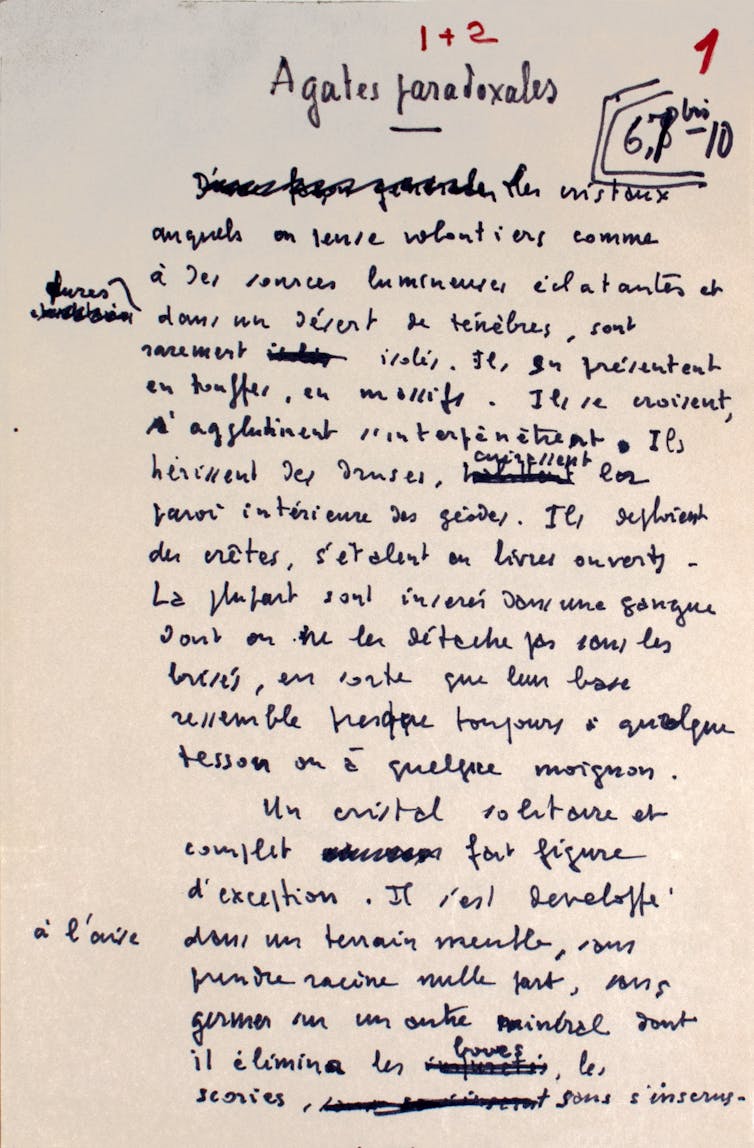 1 + 2
1
Agates paradoxales
6, bis - 10
les cristaux
auxquels on pense volontiers comme
à des sources lumineuses éclatantes et
dures
dans un désert de ténèbres, sont
rarement isolés. Ils se présentent
en touffes, en massifs. Ils se croisent,
s'agglutinent s'interpénètrent. Ils
cuirassent
hérissent des druses, la
paroi intérieure des géodes. Ils déploient
des crêtes, s'étalent en livres ouverts -
La plupart sont insérés dans une gangue
dont on ne les détache pas sans les
brisés, en sorte que leur base
ressemble presque toujours à quelque
tesson ou à quelque moignon.
Un cristal solitaire et
complet fait figure
d'exception. Il s'est developpé
à l'aise dans un terrain meuble, sans
prendre racine nulle part, sans
germer sur un autre minéral dont
boues
il élimina les , les
scories, sans s'incrus-